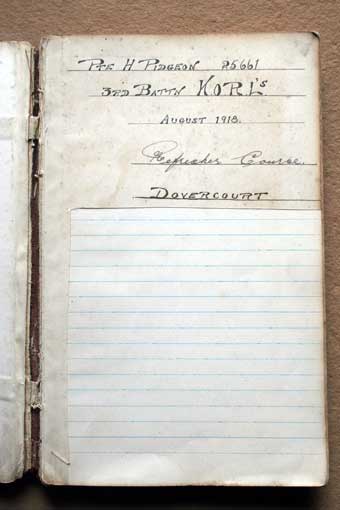 Pte H Pidgeon 25661
3rd Battn KORL's
August 1918.
Refresher Course.
Dovercourt